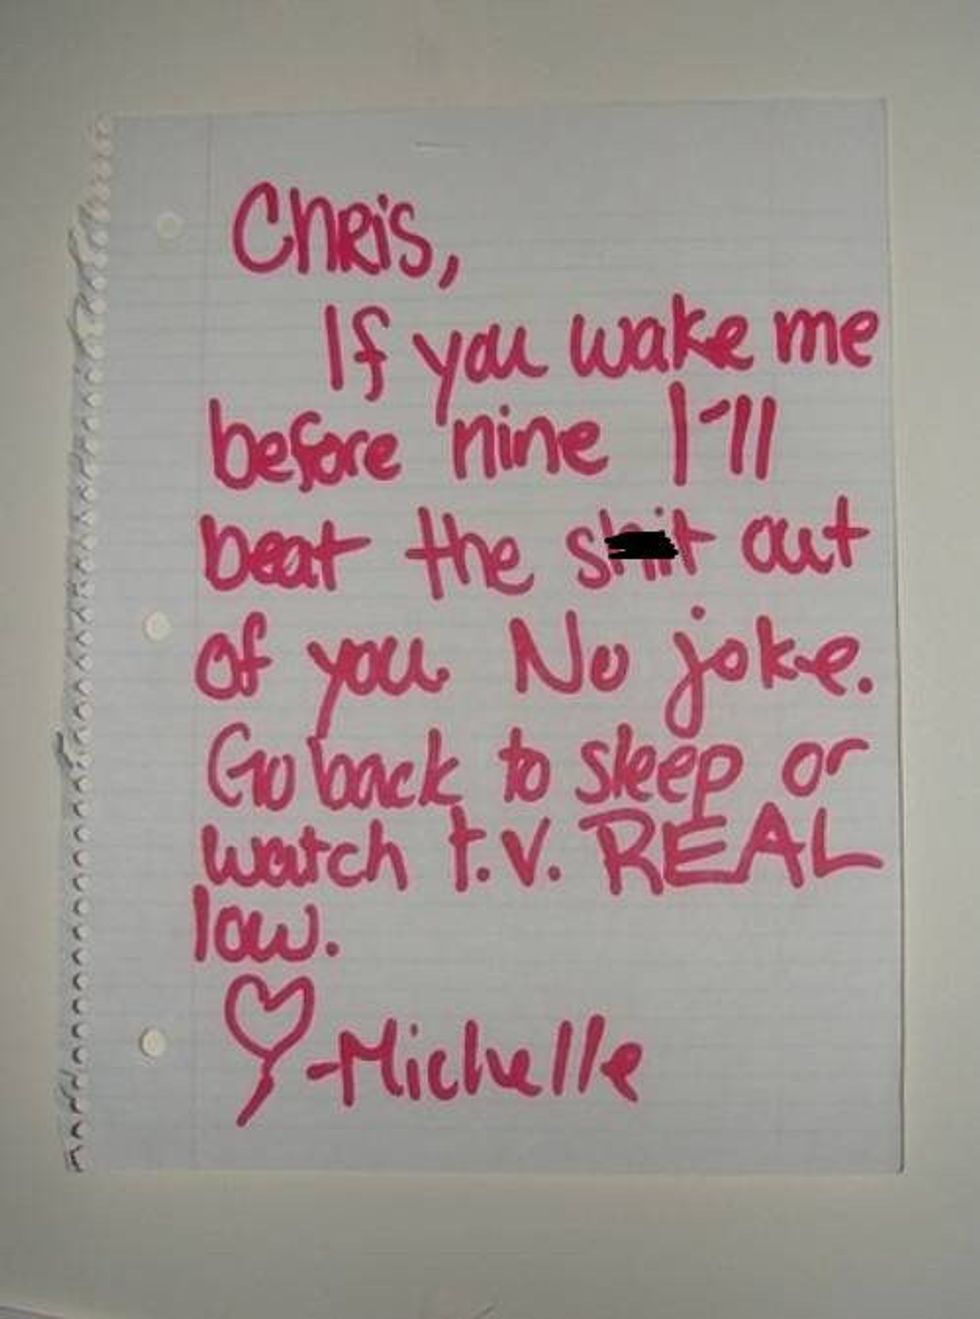 Chris,
If you wake me
before nine I'll
beat the shit out
of you. No joke.
Go back to sleep or
watch t.v. REAL
low.
♡-Michelle